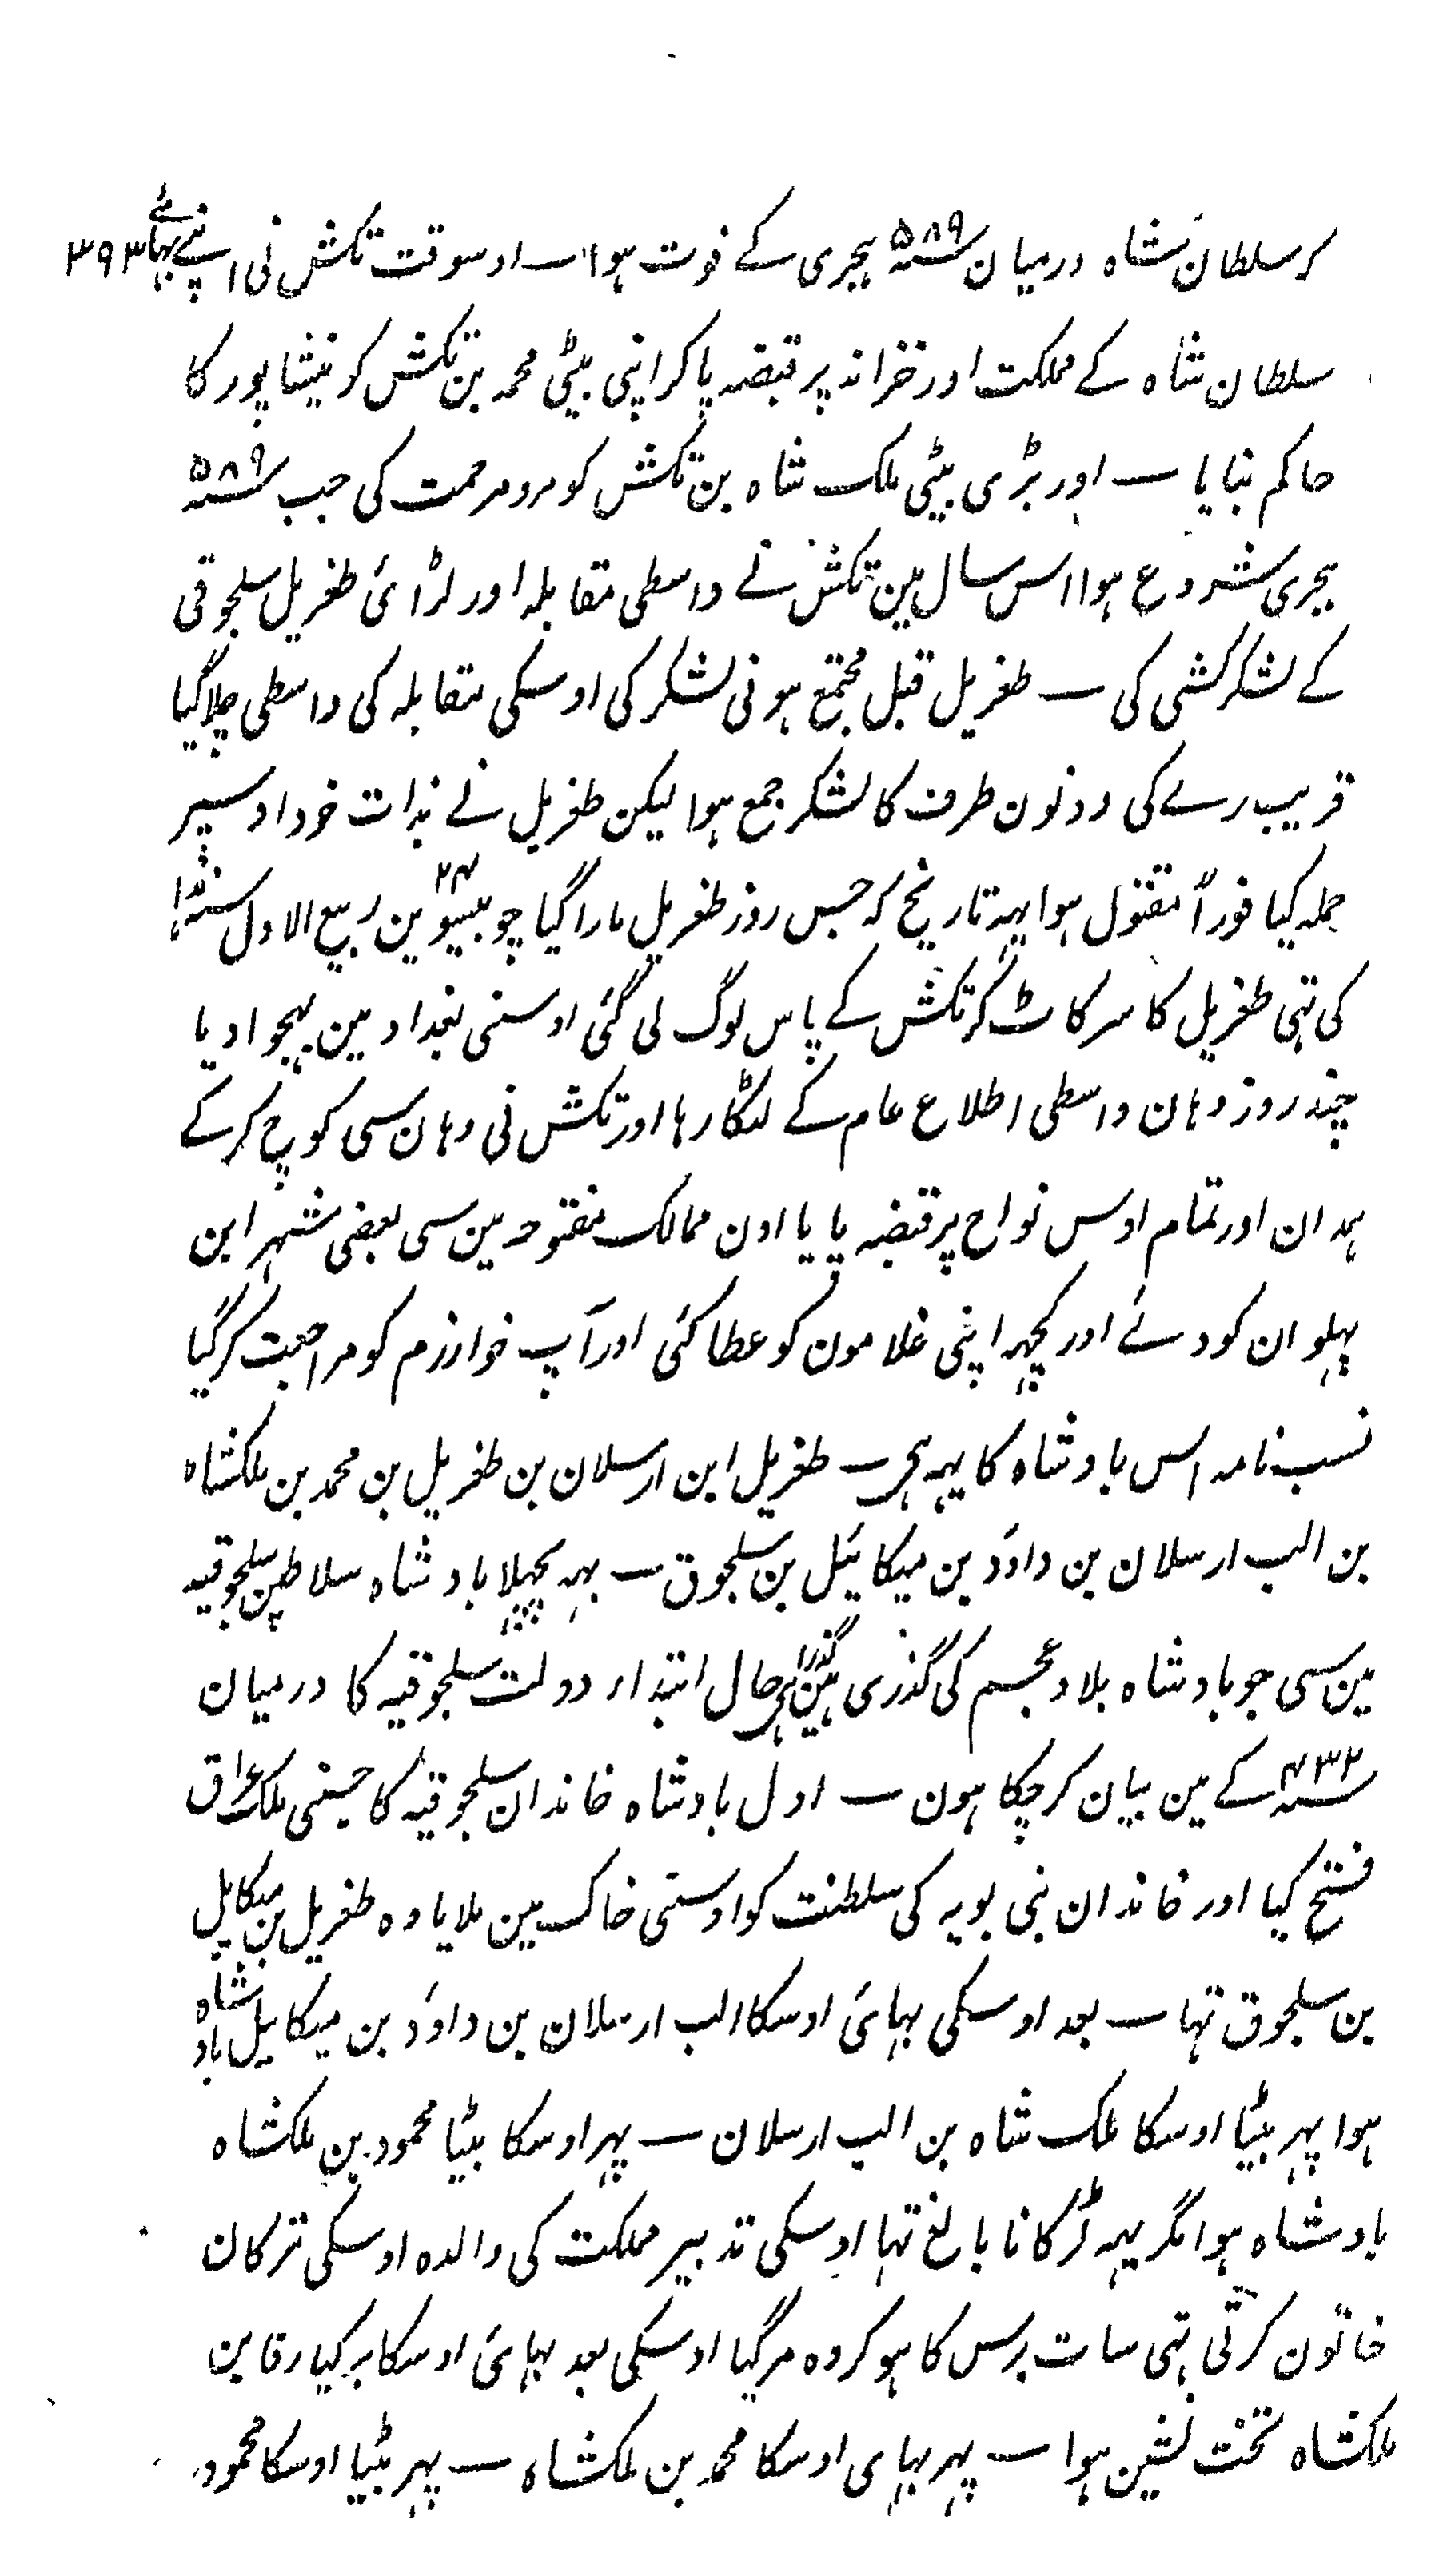 کر سلطان شاہ درمیان سنہ ۵۸۹ ہجری کے فوت ہوا — اوسوقت تکش نی اپنے بہائے ۳۹۳
سلطان شاہ کے مملکت اور خزانہ پر قبضہ پا کر اپنی بیٹی محمد بن تکش کو نیشاپور کا
حاکم بنایا — اور بڑی بیٹی ملک شاہ بن تکش کو مرو مرحمت کی جب سنہ ۵۸۹
ہجری شروع ہوا اس سال مین تکش نے واسطی مقابلہ اور لڑائی طغریل سلجوقی
کے لشکر کشی کی — طغریل قبل مجتمع ہونی لشکر کی اوسکی مقابلہ کی واسطی چلا گیا
قریب رے کی دونون طرف کا لشکر جمع ہوا لیکن طغریل نے بذات خود اوسپر
حملہ کیا فوراً مقتول ہوا یہہ تاریخ کہ جس روز طغریل مارا گیا چوبیسوین ۲۴ ربیع الاول سنہ ہذا
کی تہی طغریل کا سر کاٹ کر تکش کے پاس لوگ لی گئی اوسنی بغداد مین بہجوادیا
چند روز وہان واسطی اطلاع عام کے لٹکا رہا اور تکش نی وہان سی کوچ کر کے
ہمدان اور تمام اوس نواح پر قبضہ پایا اون ممالک مفتوحہ مین سی بعضی شہر ابن
پہلوان کو دئے اور کچہہ اپنی غلامون کو عطا کئی اور آپ خوارزم کو مراجعت کر گیا
نسب نامہ اس بادشاہ کا یہہ ہی — طغریل ابن ارسلان بن طغریل بن محمد بن ملکشاہ
بن الب ارسلان بن داؤد بن میکائیل بن سلجوق — یہہ پچہلا بادشاہ سلاطین سلجوقیہ
مین سی جو بادشاہ بلاد عجم کی گذری ہین گذرا ہی حال ابتداء دولت سلجوقیہ کا درمیان
سنہ ۴۳۲ کے مین بیان کر چکا ہون — اول بادشاہ خاندان سلجوقیہ کا جسنی ملک عراق
فتح کیا اور خاندان بنی بویہ کی سلطنت کو اوسنی خاک مین ملایا وہ طغریل بن میکایل
بن سلجوق تہا — بعد اوسکی بہائی اوسکا الب ارسلان بن داؤد بن میکایل بادشاہ
ہوا پہر بیٹا اوسکا ملک شاہ بن الب ارسلان — پہر اوسکا بیٹا محمود بن ملکشاہ
بادشاہ ہوا مگر یہہ لڑکا نابالغ تہا اوسکی تدبیر مملکت کی والدہ اوسکی ترکان
خاتون کرتی تہی سات برس کا ہو کر وہ مر گیا اوسکی بعد بہائی اوسکا برکیارق ابن
ملکشاہ تخت نشین ہوا — پہر بہای اوسکا محمد بن ملکشاہ — پہر بیٹا اوسکا محمود